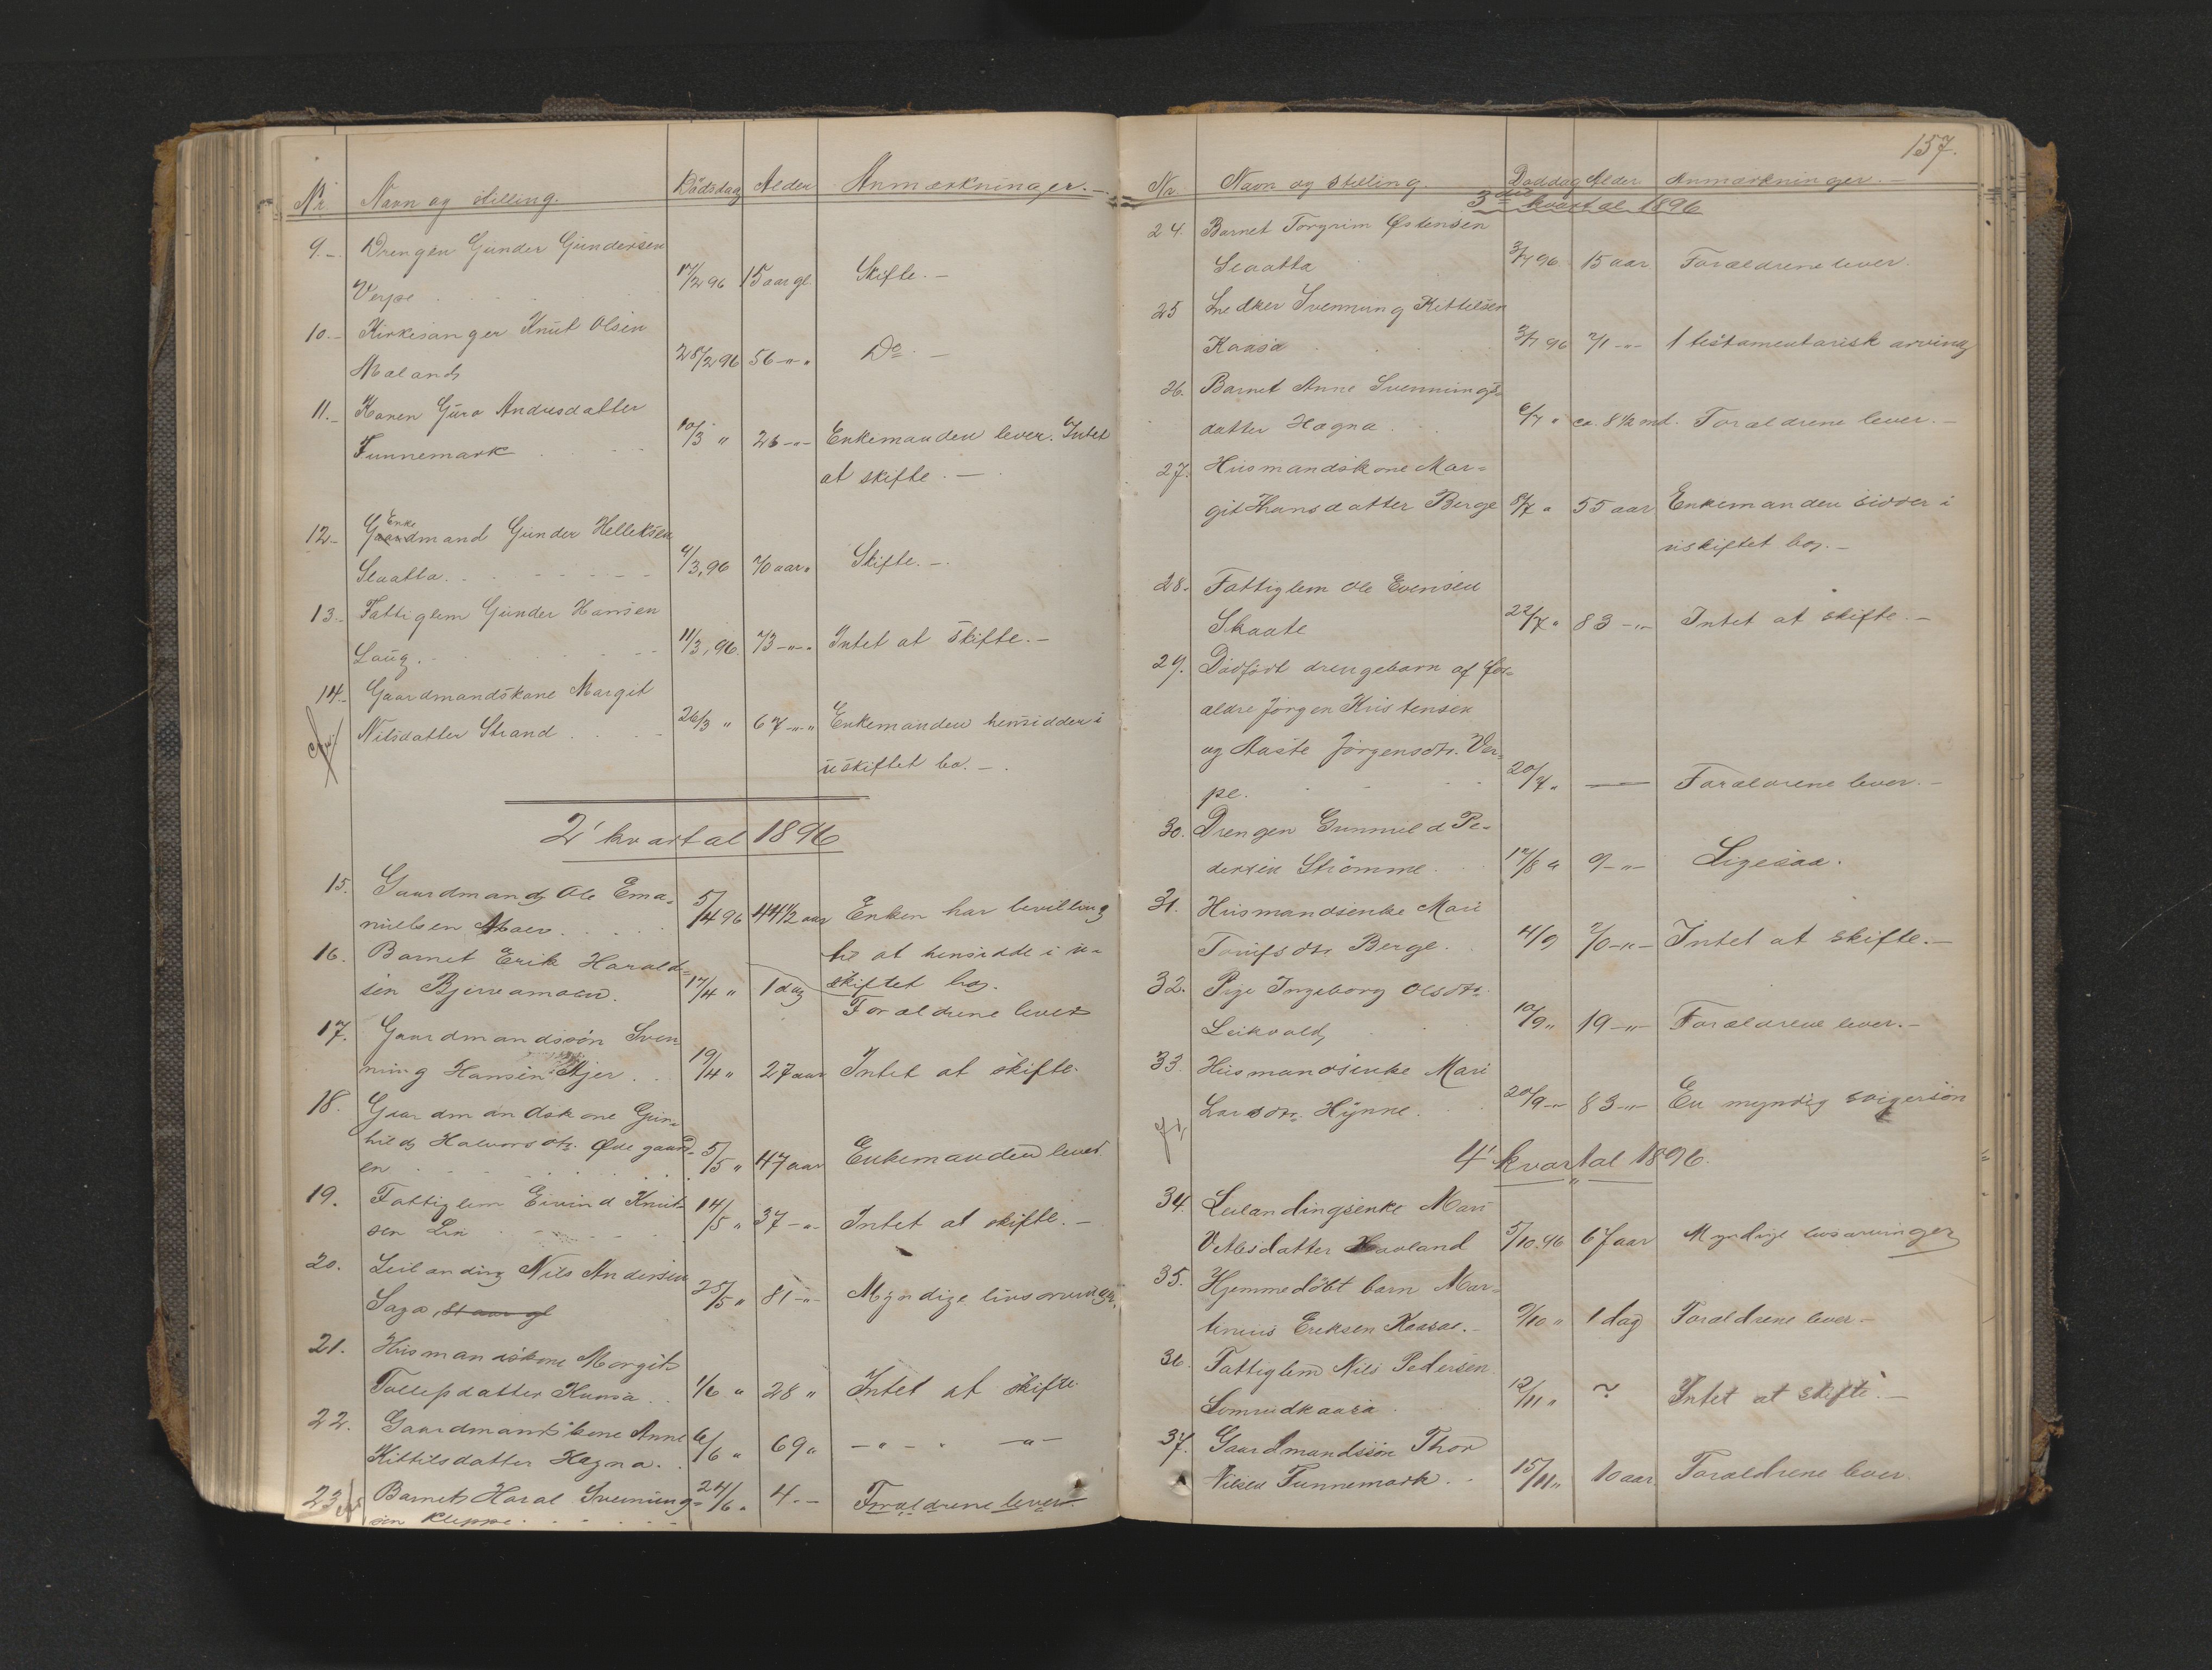 Nr. Navn og stilling. Dödsdag Alder Anmærkninger.-
9.- Drengen Gunder Gundersen
Verpe 17/2 96 15 aar gl. Skifte.-
10.- Kirkesanger Knut Olsen
Maland 28/2 96 56 -"- Do. -
11.- Konen Guro Andresdatter
Funnemark 10/3 " 26 -"- Enkemanden lever. Intet
at skifte.-
12.- Gaardmand Enke Gunder Helleksen
Slaatta. 9/3, 96 70 aar " Skifte.-
13.- Fattiglem Gunder Hansen
Laug. 11/3, 96. 73 -"- Intet at skifte.-
14.- Gaardmandskone Margit
Nilsdatter Strand 26/3 " 67 -"- Enkemanden hensidder i
uskiftet bo.-
2' kvartal 1896
15. Gaardmand Ole Ema-
nuelsen Moen 5/4 96 44 1/2 aar Enken har bevilling
til at hensidde i u-
skiftet bo.
16. Barnet Erik Harald-
sen Bjervamoen. 17/4 " 1 dag Forældrene lever
17. Gaardmandssön Sven-
nung Hansen Stjer 19/4 " 27 aar Intet at skifte.
18. Gaardmandskone Gun-
hild Halvorsdtr. Ödegaard-
en 5/5 " 47 aar Enkemanden lever
19. Fattiglem Eivind Knut-
sen Lin 14/5 " 37 -"- Intet at skifte.-
20. Leilanding Nils Andersen
Saga, 81 aar gl 25/5 " 81 -"- Myndige livsarvinger.
21. Husmandskone Margit
Tollefsdatter Kumsa 1/6 " 28 " Intet at skifte
22. Gaardmandskone Anne
Kittilsdatter Hægna. 6/6 " 69 " -"- " -"-
23. Barnet Haral Svenung-
sen Kleppe 24/6 " 4.- Forældrene lever.
157.
Nr. Navn og stilling. Döddag Alder Anmærkninger.-
3die kvartal 1896
24. Barnet Torgrim Østensen
Slaatta 3/7 96. 15 aar Forældrene lever.
25 Snedker Svennung Kittelsen
Kaasa 3/7 96 71 -"- 1 testamentarisk arving
26. Barnet Anne Svennungs-
datter Hægna 6/7 " ca. 8 1/2 md. Forældrene lever.-
27. Husmandskone Mar-
git Hansdatter Berge 8/7 " 55 aar Enkemanden sidder i
uskiftet bo.-
28. Fattiglem Ole Evensen
Skaate 22/7 " 83 -"- Intet at skifte.-
29. Dödfödt drengebarn af for-
ældre Jörgen Kristensen
og Aaste Jörgensdtr. Ver-
pe. 20/7 " — Forældrene lever.-
30. Drengen Gunnuld Pe-
dersen Strömme 17/8 " 9 -"- Ligesaa.
31. Husmandsenke Mari
Toufsdtr Berge. 4/9 70 -"- Intet at skifte.-
32. Pige Ingeborg Olsdtr.
Leikvold 10/9 " 19 -"- Forældrene lever.-
33. Husmandsenke Mari
Larsdtr. Hynne. 20/9 -"- 83 -"- En myndig svigersön
4' kvartal 1896.
34. Leilandingsenke Mari
Vetlesdatter Haoland 5/10.96 67 aar Myndige livsarvinger
35. Hjemmedöbt barn Mar-
tinius Eriksen Kaasae.- 9/10 " 1 dag Forældrene lever-
36. Fattiglem Nils Pedersen
Lomrudkaasa 12/11 " ~ Intet at skifte.-
37. Gaardmandssön Thor
Nilsen Funnemark. 15/11 " 10 aar. Forældrene lever.